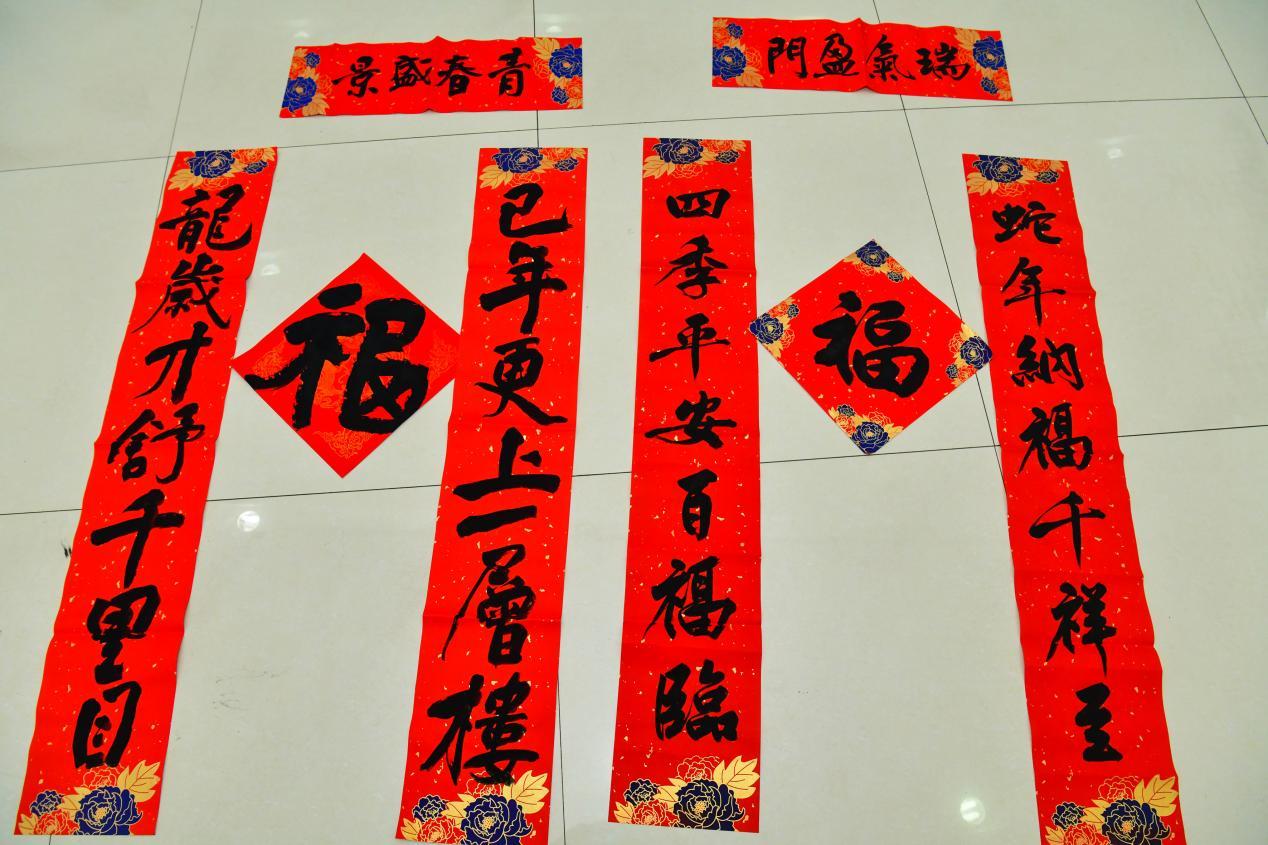 青春盛景
龍歲才舒千里目
巳年更上一層樓
福
瑞氣盈門
蛇年納福千祥至
四季平安百福臨
福